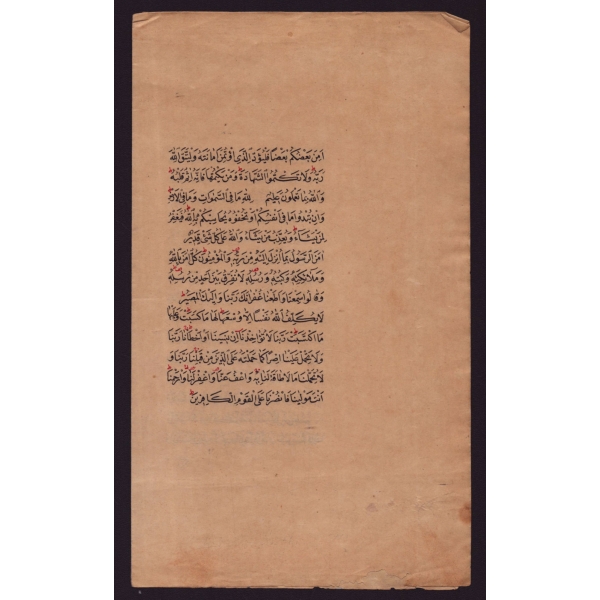 امن بعضكم بعضا فليؤد الذي اؤتمن امانته وليتق الله
ربه ولا تكتموا الشهادة ومن يكتمها فانه اثم قلبه
والله بما تعملون عليم لله ما في السموات وما في الارض
وان تبدوا ما في انفسكم او تخفوه يحاسبكم به الله فيغفر
لمن يشاء ويعذب من يشاء والله على كل شئ قدير
امن الرسول بما انزل اليه من ربه والمؤمنون كل امن بالله
وملائكته وكتبه ورسله لا نفرق بين احد من رسله
وقالوا سمعنا واطعنا غفرانك ربنا واليك المصير
لا يكلف الله نفسا الا وسعها لها ما كسبت وعليها
ما اكتسبت ربنا لا تؤاخذنا ان نسينا او اخطأنا ربنا
ولا تحمل علينا اصرا كما حملته على الذين من قبلنا ربنا و
لا تحملنا ما لا طاقة لنا به واعف عنا واغفر لنا وارحمنا
انت مولينا فانصرنا على القوم الكافرين